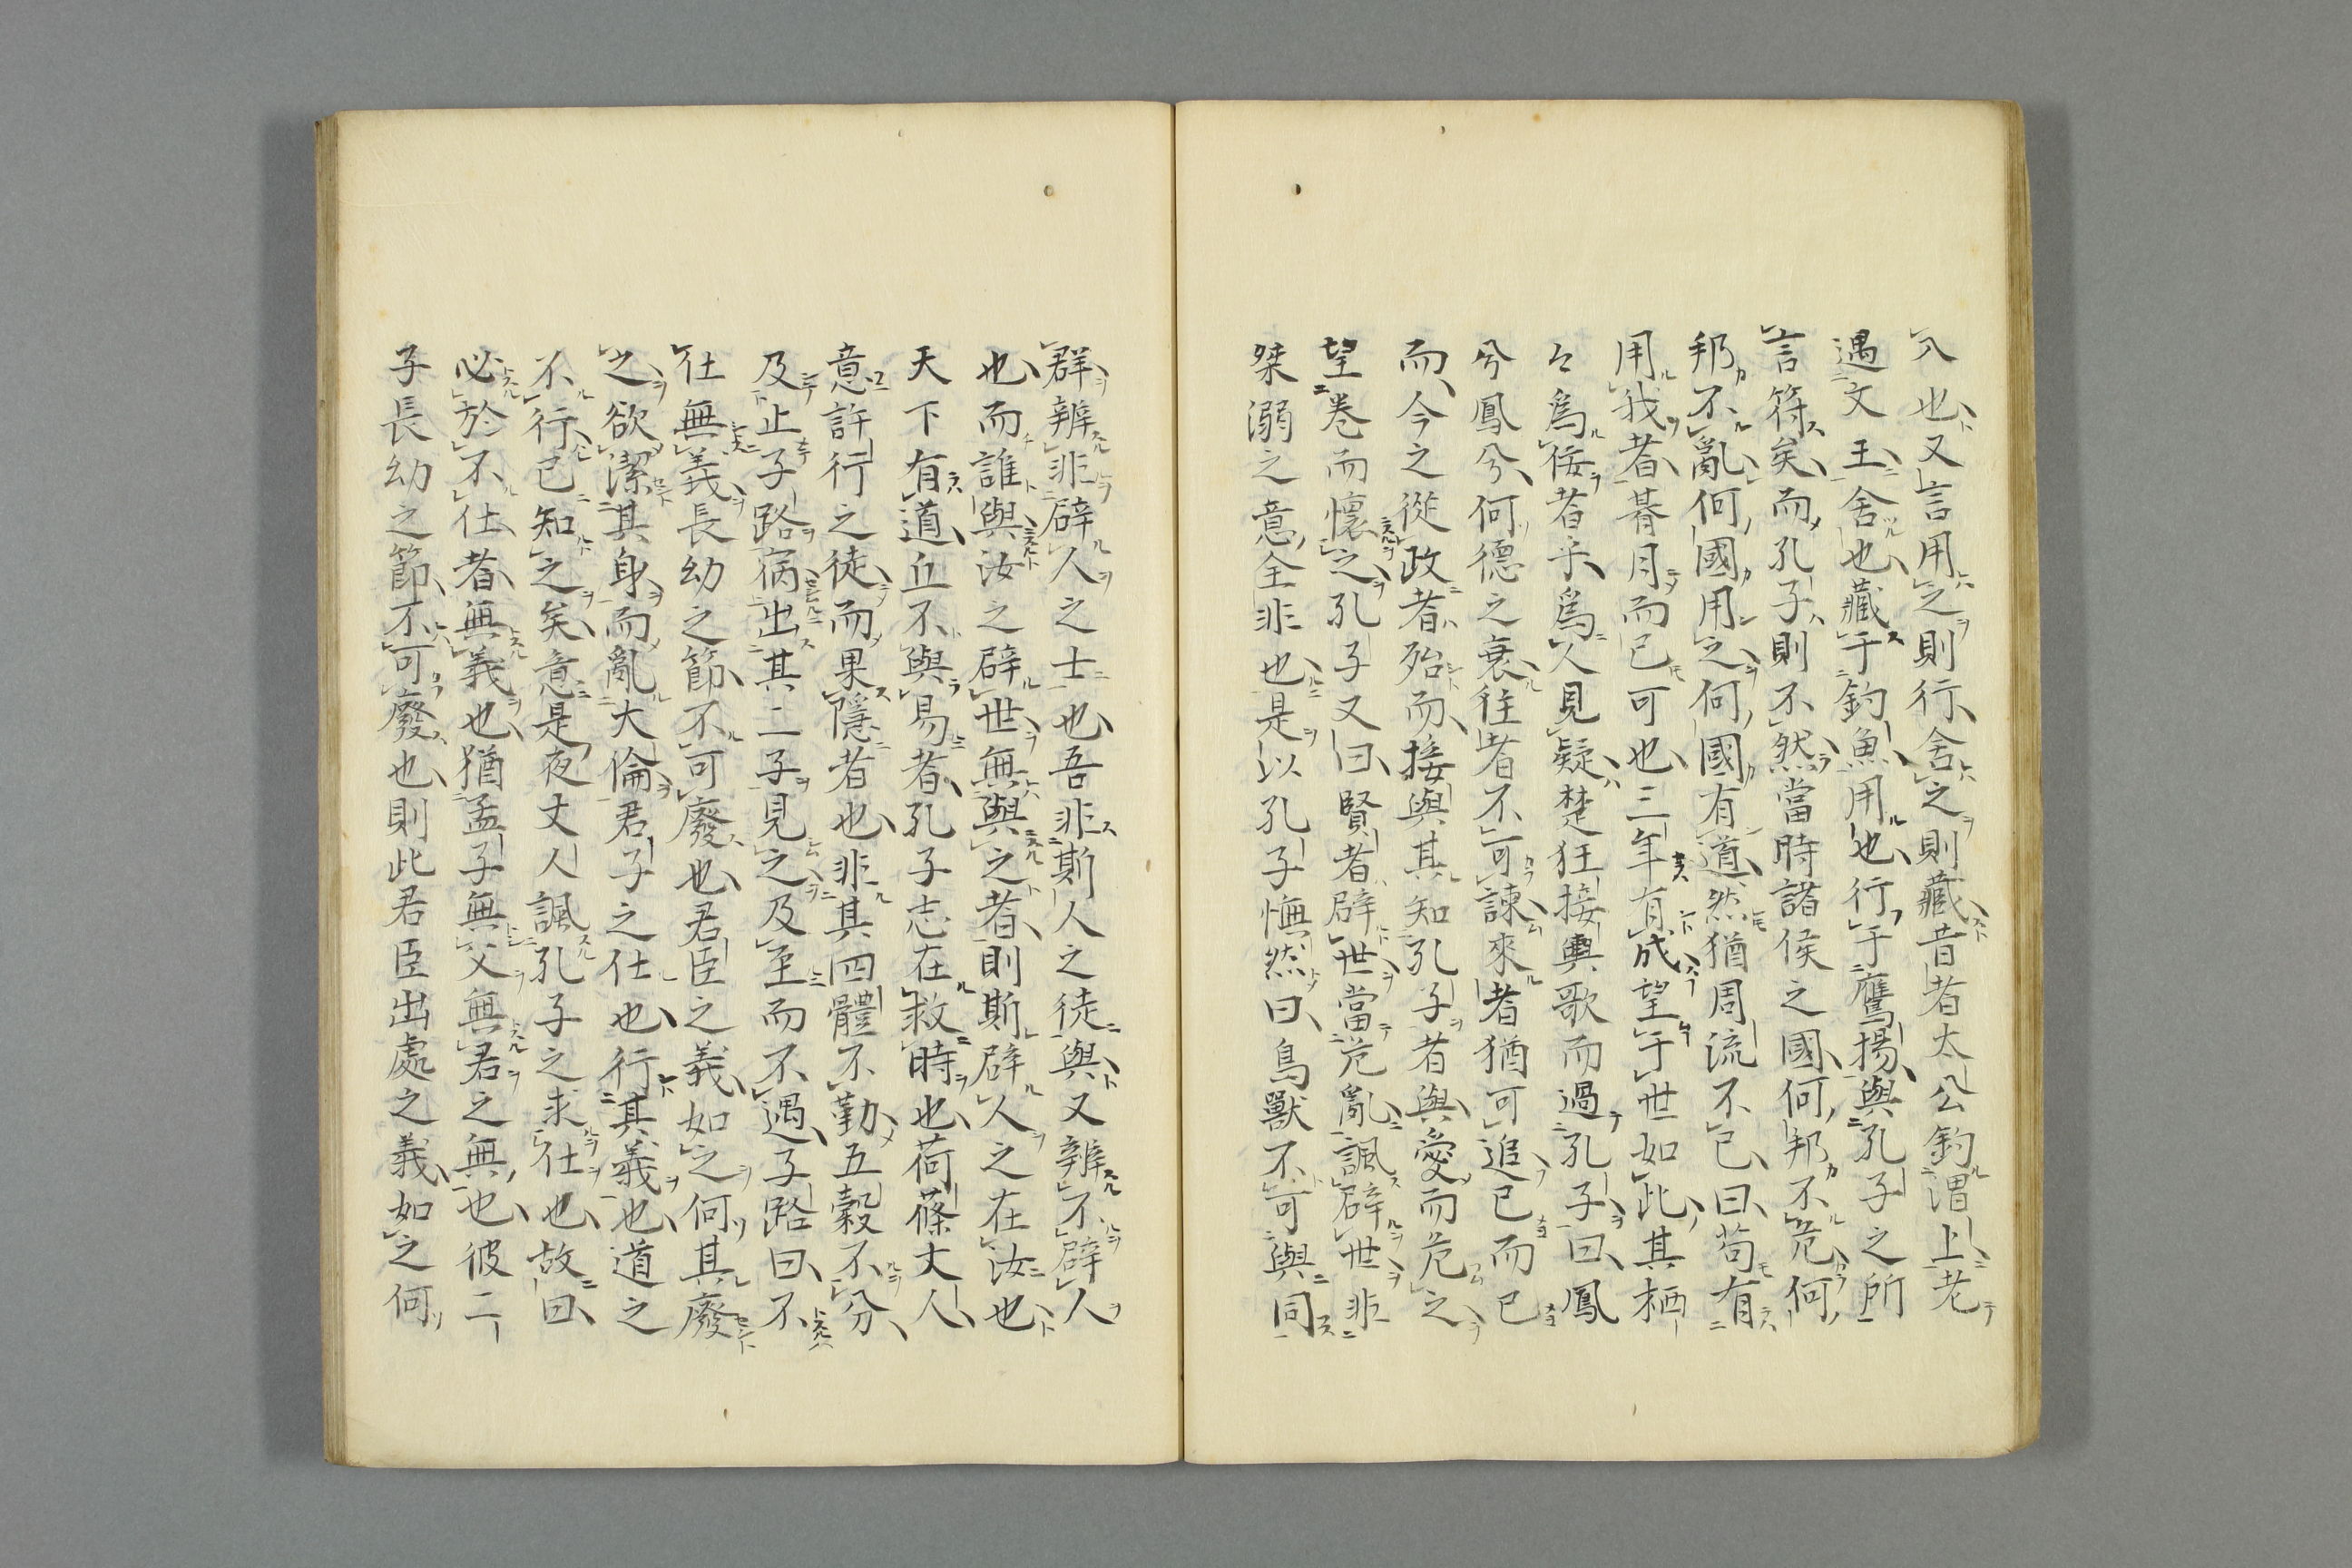 入也又言用之則行舍之則藏昔者太公釣渭上老
遇文王舍也藏于釣魚用也行于鷹揚與孔子之所
言符矣而孔子則不然當時諸侯之國何邦不危何
邦不亂何國用之何國有道然猶周流不已曰苟有
用我者朞月而已可也三年有成望于世如此其栖
々爲佞者乎爲人見疑楚狂接輿歌而過孔子曰鳳
兮鳳兮何德之衰往者不可諫來者猶可追已而已
而今之從政者殆而接輿其知孔子者與愛而危之
望卷而懷之孔子又曰賢者辟世當危亂諷辟世非
桀溺之意全非也是以孔子憮然曰鳥獸不可與同
群辨非辟人之士也吾非斯人之徒與又辨不辟人
也而誰與汝之辟世無與之者則斯辟人之在汝也
天下有道丘不與易者孔子志在救時也荷蓧丈人
意許行之徒而果隱者也非其四體不勤五穀不分
及止子路宿出其二子見之及至而不遇子路曰不
仕無義長幼之節不可廢也君臣之義如之何其廢
之欲潔其身而亂大倫君子之仕也行其義也道之
不行已知之矣意是夜丈人諷孔子之求仕也故曰
必於不仕者無義也猶孟子無父無君之無也彼二
子長幼之節不可廢也則此君臣出處之義如之何